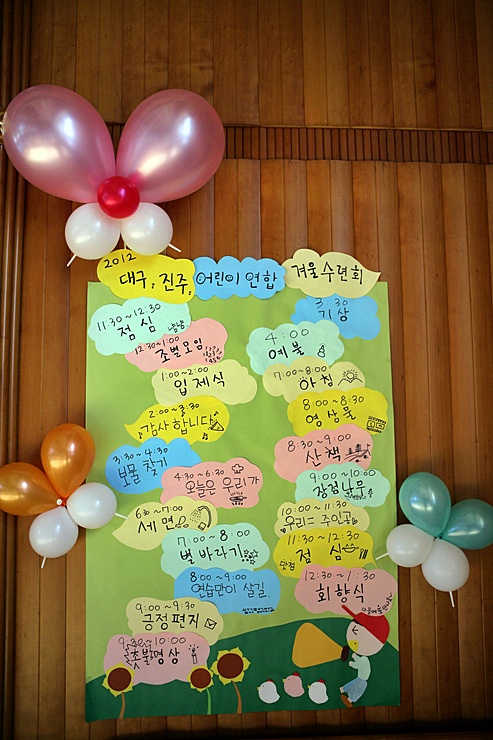 2012
대구, 진주,
어린이 연합
겨울수련회
11:30~12:30
점심 냠냠
12:30~1:00
조별모임
1:00~2:00
입제식
2:00~3:30
감사합니다
3:30~4:30
보물 찾기
4:30~6:30
오늘은 우리가
6:30~7:00
세면
7:00~8:00
별바라기
8:00~9:00
연습만이 살길
9:00~9:30
긍정편지
9:30~10:00
촛불명상
3:30
기상
4:00
예불
7:00~8:00
아침
8:00~8:30
영상물
8:30~9:00
산책
9:00~10:00
장점나무
10:00~11:30
우리는 주인공
11:30~12:30
점심
12:30~1:30
회향식